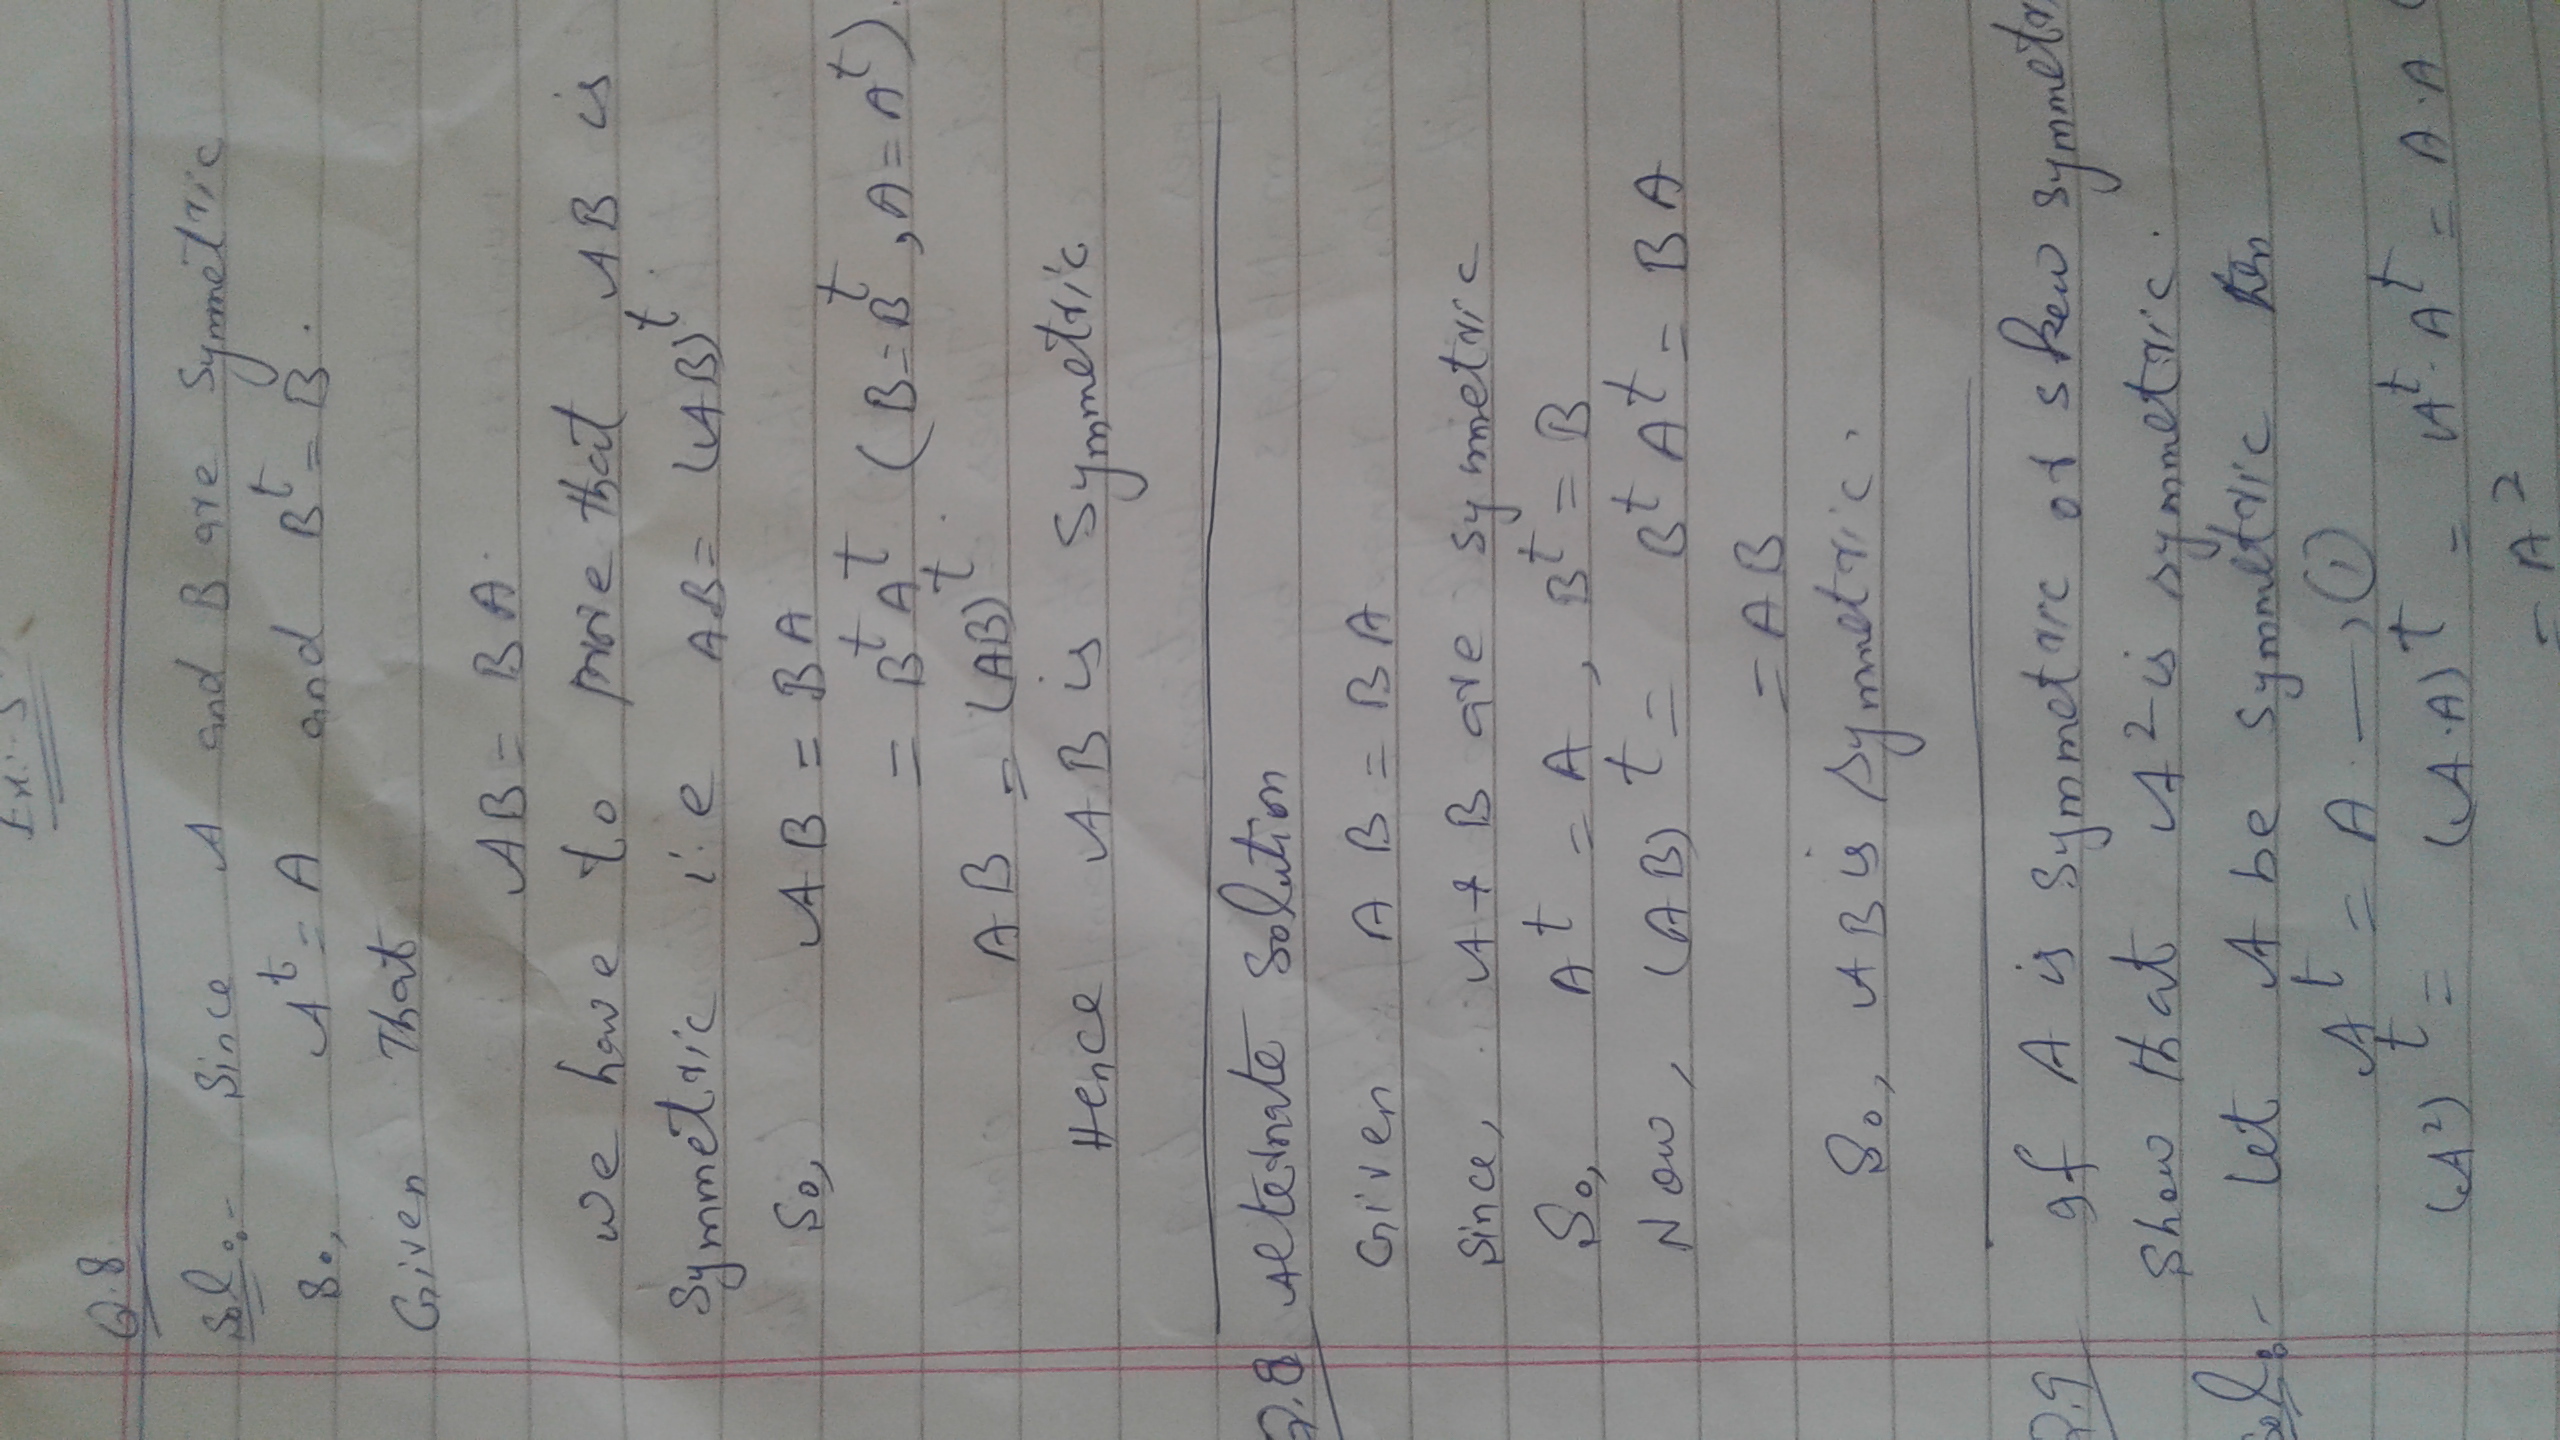 Ex:-5
Q.8
Sol:- Since A and B are Symmetric
So, Aᵗ = A and Bᵗ = B.
Given That
AB = BA.
we have to prove that AB is
Symmetric i.e AB = (AB)ᵗ.
So, AB = BA
= BᵗAᵗ (B=Bᵗ, A=Aᵗ).
AB = (AB)ᵗ.
Hence AB is Symmetric
Q.8 Alternate Solution
Given AB = BA
Since, A + B are symmetric
So, Aᵗ = A, Bᵗ = B
Now, (AB)ᵗ = BᵗAᵗ = BA
= AB
So, AB is symmetric.
Q.9 If A is Symmetric or skew symmetric
Show that A² is symmetric.
Sol:- Let A be symmetric then
Aᵗ = A —, (1)
(A²)ᵗ = (A·A)ᵗ = Aᵗ·Aᵗ = A·A
= A²